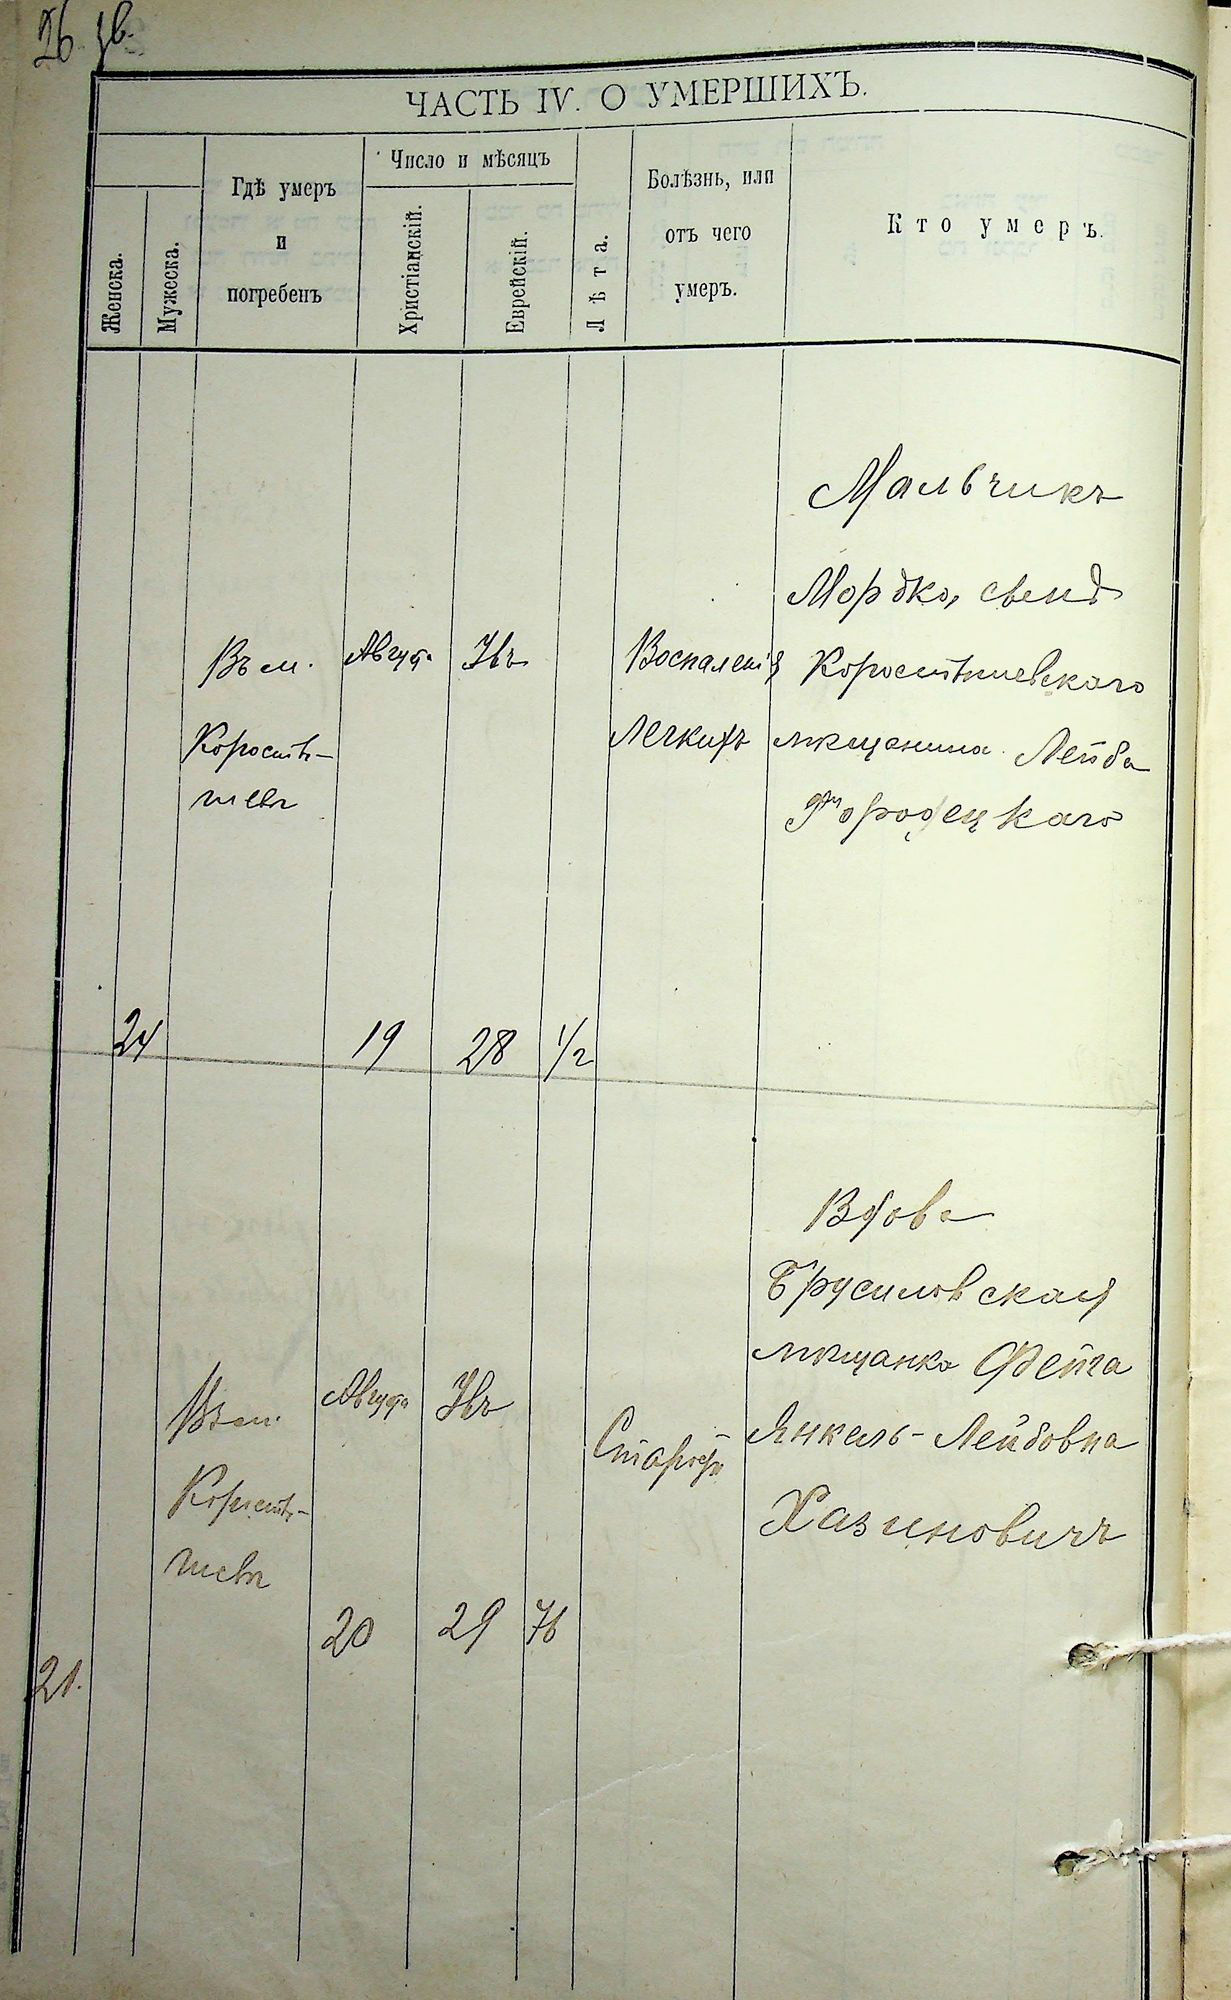 26 зв.
ЧАСТЬ IV. О УМЕРШИХЪ.
Женска.
Мужеска.
Гдѣ умеръ
и
погребенъ
Число и мѣсяцъ
Христіанскій.
Еврейскій.
Лѣта.
Болѣзнь, или
отъ чего
умеръ.
Кто умеръ.
Мальчикъ
Мордко, сынъ
Коростышевскаго
мѣщанина Лейба
Городецкаго
Въ м.
Коросты-
шевѣ
Августа
Воспаленія
Легкихъ
24
19
28
1/2
Вдова
Брусиловская
мѣщанка Фейга
Янкель-Лейбовна
Хазиновичъ
Въ м.
Коросты-
шевѣ
Августа
20
29
76
21.